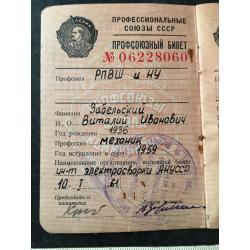 ПРОФЕССИОНАЛЬНЫЕ
СОЮЗЫ СССР
ПРОФСОЮЗНЫЙ БИЛЕТ
№ 06228060
Профсоюз РПВШ и НУ
Фамилия Забельский
И., О. Виталий Иванович
Год рождения 1936
Профессия механик
Год вступления в союз 1959
Наименование организации, выдавшей билет
ин-т электросварки АНУССР
10. I 61
Председатель
комитета